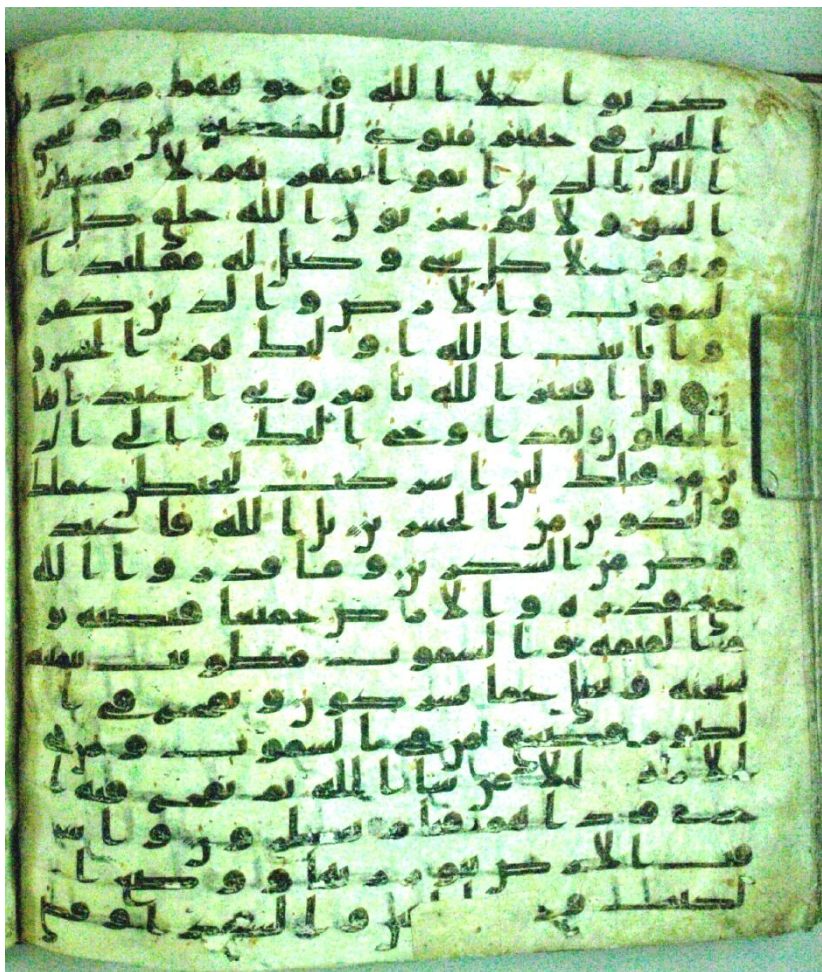 كذبوا على الله وجوههم مسودة
اليس في جهنم مثوى للمتكبرين وينجي
الله الذين اتقوا بمفازتهم لا يمسهم
السو ولا هم يحزنون الله خلق كل شي
وهو على كل شي وكيل له مقليد ا
لسموت والارض والذين كفرو
ا بايت الله اولئك هم الخسرو
ن قل افغير الله تامروني اعبد ايها
الجهلون ولقد اوحي اليك والى الذ
ين من قبلك لئن اشركت ليحبطن عملك
ولتكونن من الخسرين بل الله فاعبد
وكن من الشكرين وما قدروا الله
حق قدره والارض جميعا قبضته يو
م القيمة والسموت مطويت بيمينه
سبحنه وتعلى عما يشركون ونفخ في ا
لصور فصعق من في السموت ومن في
الارض الا من شا الله ثم نفخ فيه ا
خرى فاذا هم قيام ينظرون واشر
قت الارض بنور ربها ووضع ا
لكتب وجي والشهدا وقضي